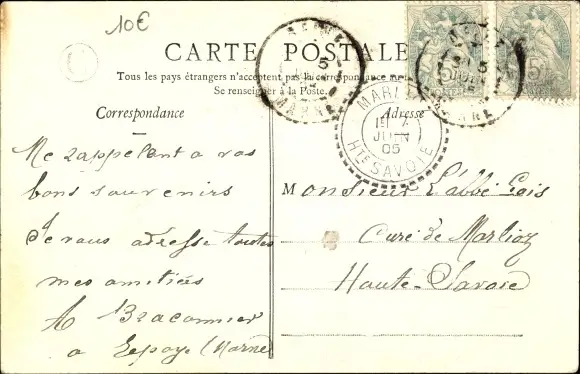 10€
CARTE POSTALE
Tous les pays étrangers n'acceptent pas la correspondance
Se renseigner à la Poste.
Correspondance
Adresse
MARNE
5
MARNE
5
5c
5c
JUIN
05
HTE SAVOIE
Me rappelant à vos
bons souvenirs
Je vous adresse toutes
mes amitiés
A Braconnier
a Sepoye (Marne
Monsieur L'abbé Geis
Curé de Marlioz
Haute-Savoie